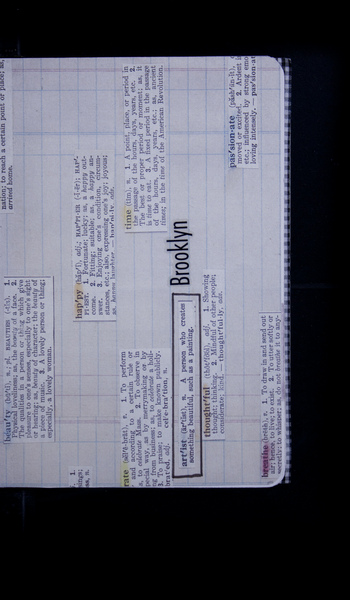 nation; to reach a certain point or place; as,
arrived home.
beau'ty (bū'tĭ), n.; pl. BEAUTIES (-tĭz). 1.
Physical loveliness; as, the beauty of a face. 2.
The qualities in a person or thing which give
pleasure to one's senses, especially to one's sight
or hearing; as, beauty of character; the beauty of
a poem or of music. 3. A lovely person or thing;
especially, a lovely woman.
hap'py (hăp'ĭ), adj.; HAP'PI-ER (-ĭ-ẽr); HAP'-
PI-EST. 1. Fortunate; lucky; as, a happy out-
come. 2. Fitting; suitable; as, a happy an-
swer. 3. Enjoying one's condition, circum-
stances, etc.; also, expressing one's joy; joyous;
as, happy laughter.
time (tīm), n. 1. A point, place, or period in
the passage of the hours, days, years, etc. 2.
The best or proper period or moment; as, it
is time to eat. 3. A fixed period in the passage
of the hours, days, years, etc.; as, ancient
times; in the time of the American Revolution.
pas'sion-ate (păsh'ŭn-ĭt),
moved or excited. 2. Ardent
etc.; influenced by strong emo
loving intensely. — pas'sion-at
1.
as, n.
rate 1. To perform
and according to a certain rule;
as, to celebrate Mass. 2. To observe in a
special way, as by merrymaking or by
from business; as, to celebrate a holi-
3. To praise; to make known publicly.
brated, adj. cel'e-bra'tion, n.
Brooklyn
art'ist (är'tĭst), n. A person who creates
something beautiful, such as a painting.
thought'ful (thôt'fŏŏl), adj. 1. Showing
thought; thinking. 2. Mindful of other people;
considerate; kind. — thought'ful-ly, adv.
breathe 1. To draw in and send out
air; hence, to live; to exist. 2. To utter softly or
secretly; to whisper; as, do not breathe it to any-